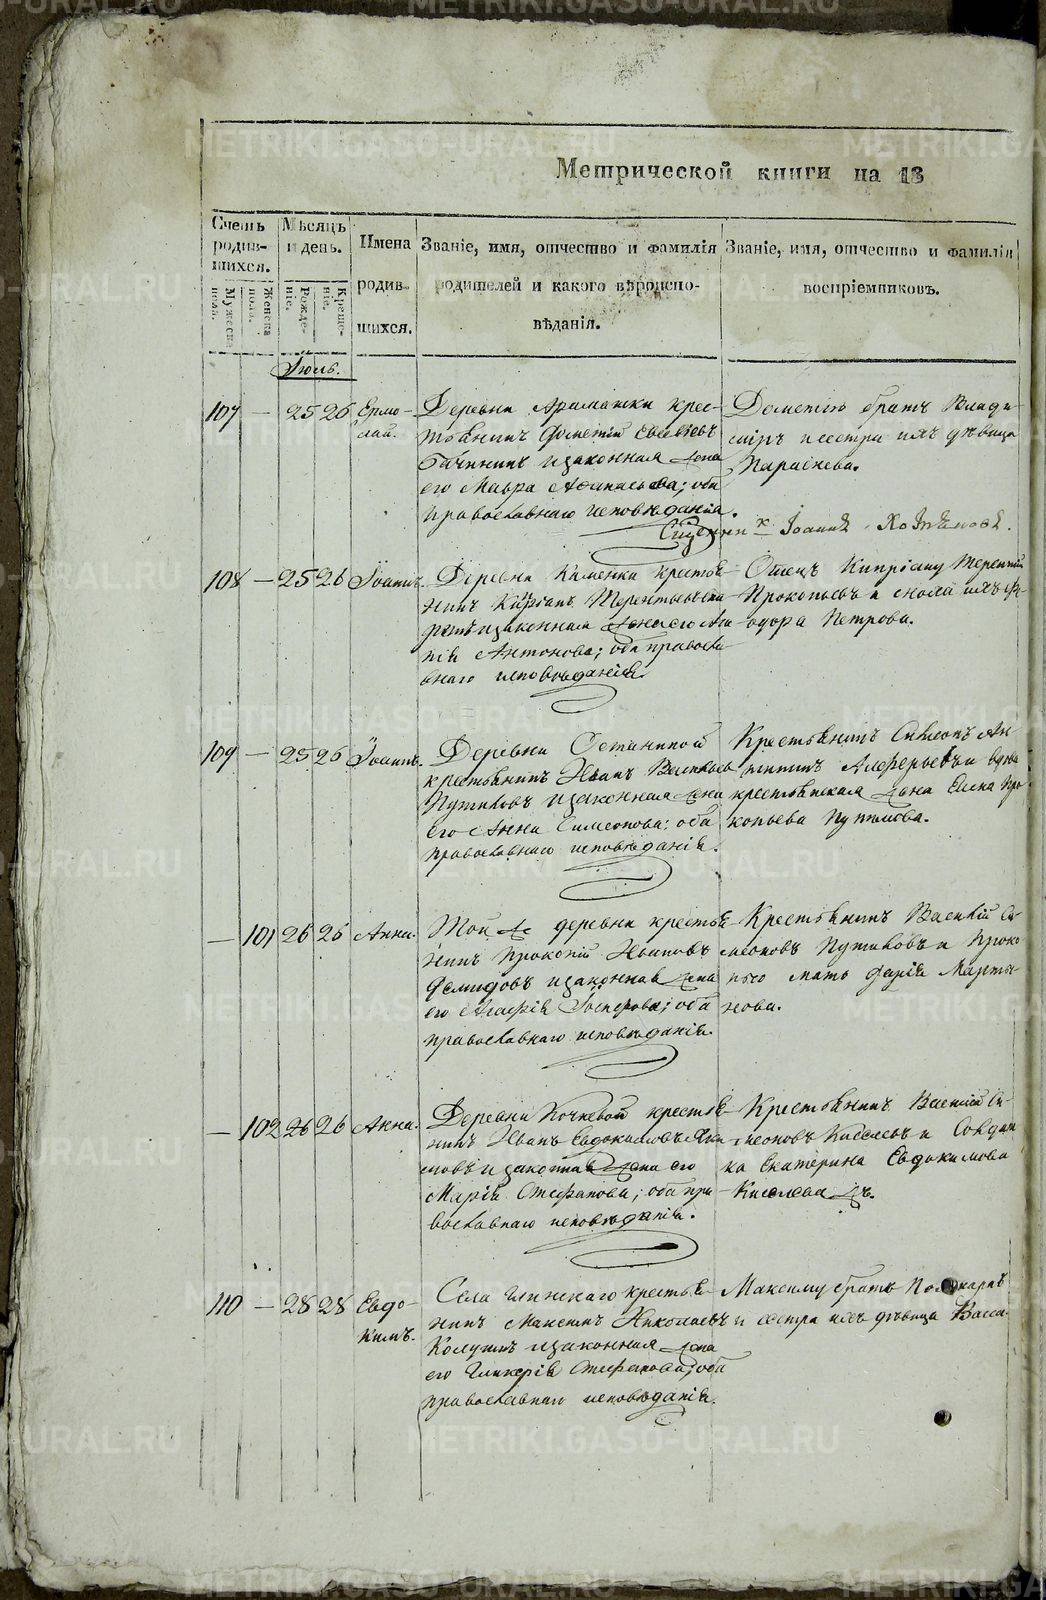 Метрической книги на 18
Счетъ родив-шихся.
Мужеска пола.
Женска пола.
Мѣсяцъ и день.
Рожде-ніе.
Креще-ніе.
Имена родив-шихся.
Званіе, имя, отчество и фамилія родителей и какого вѣроиспо-вѣданія.
Званіе, имя, отчество и фамилія воспріемниковъ.
Іюль.
107 — 25 26 Ермо-
лай.
Деревни Арамашки крес-
тьянинъ Дометій Евсевіевъ
и законная жена
его Мавра Аѳанасьева; оба
православнаго исповѣданія.
Дометію братъ Влади-
міръ и сестра ихъ дѣвица
Параскева.
Іоаннъ
108 — 25 26 Іоаннъ.
Деревни Каменки крестья-
нинъ Кипріанъ Терентьевъ
и законная жена его
Антонова; оба правосла-
внаго исповѣданія.
Отецъ Кипріану Терентій
Прокопьевъ и сноха ихъ Ѳе-
одора Петрова.
109 — 25 26 Іоаннъ.
Деревни Останиной
крестьянинъ Иванъ Васильевъ
Путиловъ и законная жена
его Анна Симеонова; оба
православнаго исповѣданія.
Крестьянинъ Симеонъ
Алферьевъ и
крестьянская жена Елена Про-
копьева Путилова.
— 101 26 26 Анна.
Той же деревни крестья-
нинъ Прокопій Ивановъ
Демидовъ и законная жена
его Агафія; оба
православнаго исповѣданія.
Крестьянинъ Василій Си-
меоновъ Путиловъ и Проко-
пью мать Дарія Марты-
нова.
— 102 26 26 Анна.
Деревни Кочневой крестья-
нинъ Иванъ Евдокимовъ Яки-
мовъ и законная жена его
Марія Стефанова; оба пра-
вославнаго исповѣданія.
Крестьянинъ Василій Си-
меоновъ Киселевъ и Солдат-
ка Екатерина Евдокимова
Киселева жъ.
110 — 28 28 Евдо-
кимъ.
Села Глинскаго крестья-
нинъ Максимъ Николаевъ
Колугинъ и законная жена
его Гликерія Стефанова; оба
православнаго исповѣданія.
Максиму братъ Поликарпъ
и сестра ихъ дѣвица Васса.
METRIKI.GASO-URAL.RU